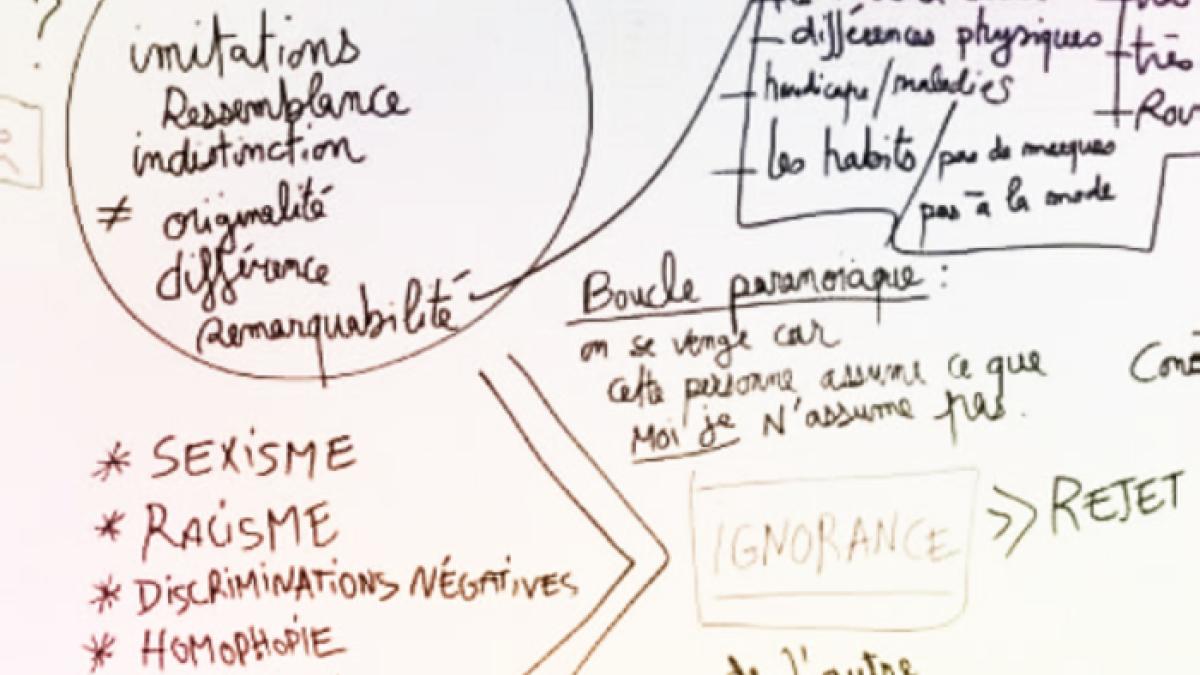 ?
imitations
Ressemblance
indistinction
≠ originalité
différence
Remarquabilité
différences physiques
handicape/maladies
les habits/pas de marques
pas à la mode
très
Boucle paranoiaque :
on se venge car
cette personne assume ce que
Moi je N'assume pas.
* SEXISME
* RACISME
* DISCRIMINATIONS NÉGATIVES
* HOMOPHOPIE
IGNORANCE
>> REJET
de l'autre